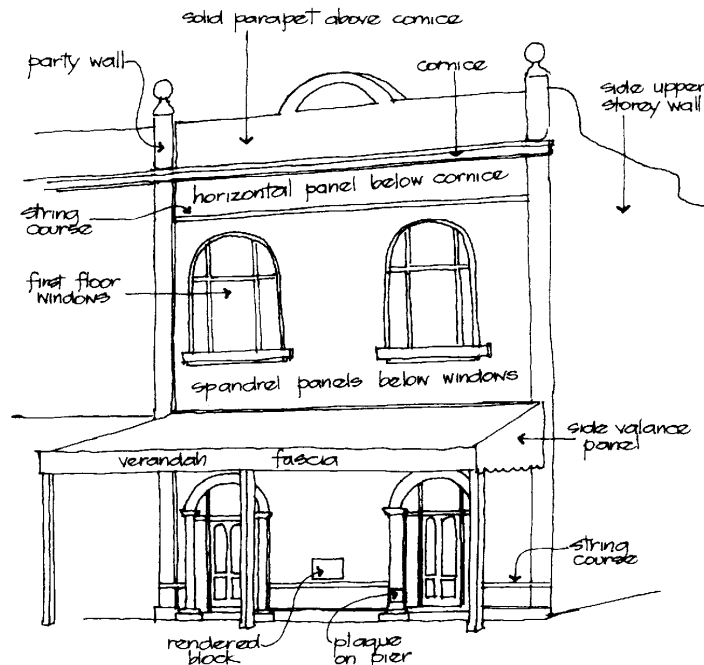 solid parapet above cornice
party wall
cornice
side upper
storey wall
horizontal panel below cornice
string
course
first floor
windows
spandrel panels below windows
side valance
panel
verandah fascia
string
course
rendered
block
plaque
on pier